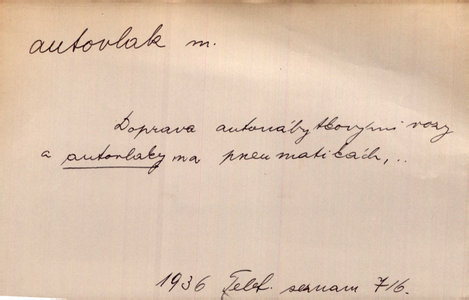 autovlak m.
Doprava autonábytkovými vozy
a autovlaky na pneumatikách,..
1936 Telef. seznam 716.